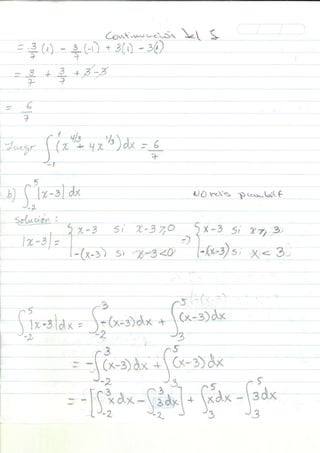 Continuación del 5
= 3/7 (1) - 3/7 (-1) + 3(1) - 3(1)
= 3/7 + 3/7 + 3 - 3
= 6/7
Luego ∫_{-1}^{1} (x^{4/3} + 4x^{1/3}) dx = 6/7
b) ∫_{-2}^{5} |x-3| dx
Solución :
|x-3| = { x-3 si x-3 ≥ 0 => { x-3 si x ≥ 3
{ -(x-3) si x-3 < 0 { -(x-3) si x < 3
∫_{-2}^{5} |x-3| dx = ∫_{-2}^{3} -(x-3) dx + ∫_{3}^{5} (x-3) dx
= -∫_{-2}^{3} (x-3) dx + ∫_{3}^{5} (x-3) dx
= -[∫_{-2}^{3} x dx - ∫_{-2}^{3} 3 dx] + ∫_{3}^{5} x dx - ∫_{3}^{5} 3 dx